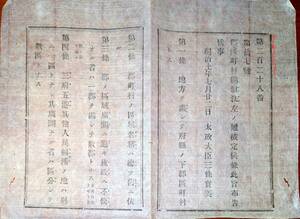 第二百二十八番
第拾七號
郡區町村編制法左ノ通被定候條此旨布告
候事
明治十一年七月廿二日 太政大臣三條實美
第一條 地方ヲ畫シテ府縣ノ下郡區町村
トス
第二條 郡町村ノ區域名稱ハ總テ舊ニ依
ル
第三條 郡ノ區域廣濶ニ過キ施政ニ不便
ナル者ハ一郡ヲ畫シテ數郡トナス
第四條 三府五港其他人民輻湊ノ地ハ別
ニ一區トナシ其廣濶ナル者ハ區分シテ
數區トナス